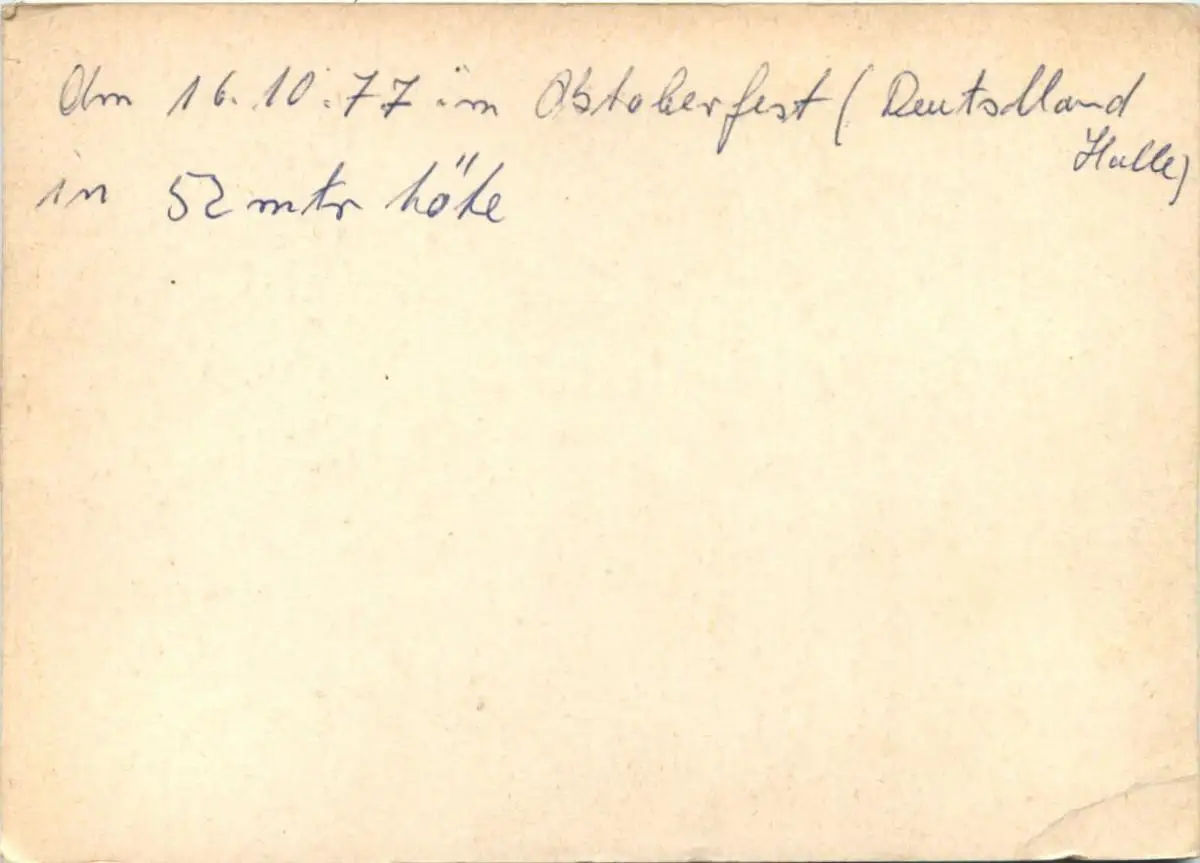 Am 16.10.77 im Oktoberfest (Deutschland
Halle)
in 52 mtr höhe